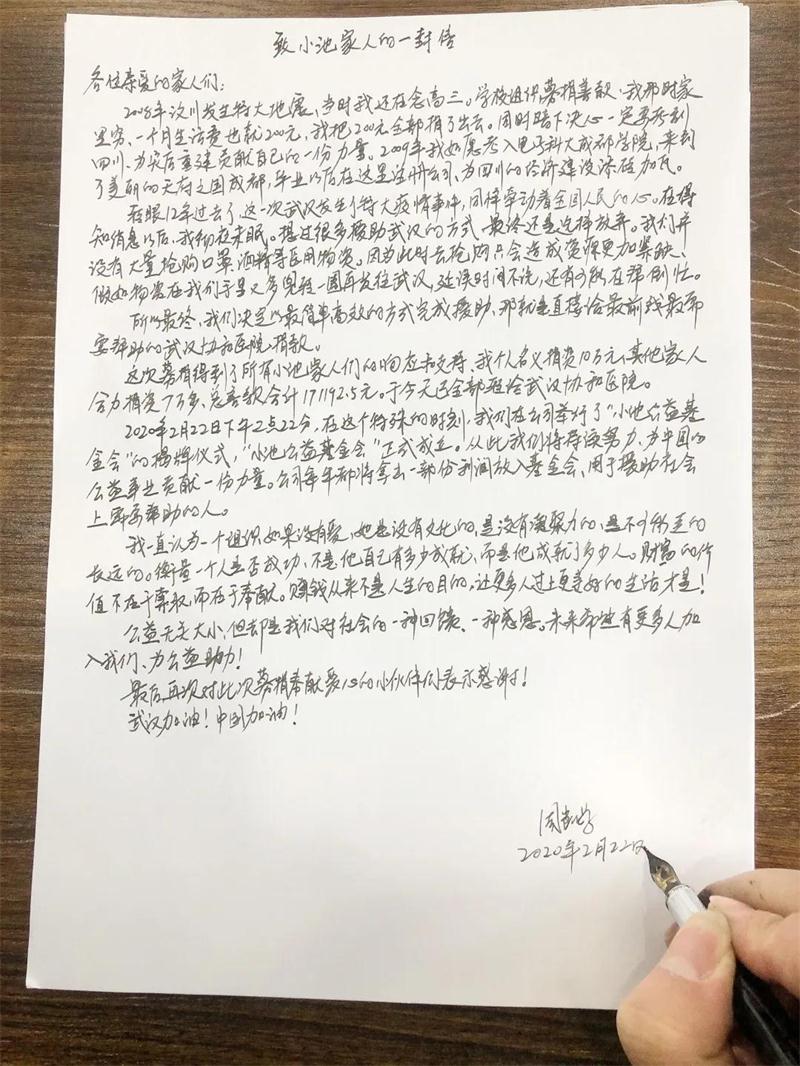 致小池家人的一封信
各位亲爱的家人们:
2008年汶川发生特大地震、当时我还在念高三。学校组织募捐善款、我那时家
里穷、一个月生活费也就200元,我把200元全部捐了出去。同时暗下决心一定要考到
四川、为灾后重建贡献自己的一份力量。2009年我如愿考入电子科大成都学院,来到
了美丽的天府之国成都,毕业以后在这里注册公司、为四川的经济建设添砖加瓦。
转眼12年过去了,这一次武汉发生了特大疫情事件,同样牵动着全国人民的心。在得
知信息以后、我彻夜未眠。想过很多援助武汉的方式、最终还是选择放弃。我们并
没有大量抢购口罩、酒精等医用物资。因为此时去抢购只会造成资源更加紧缺、
假如物资在我们手里又多鬼径一圈再发往武汉,延误时间不说,还有可能在帮倒忙。
所以最终、我们决定以最简单高效的方式完成援助、那就是直接给最前线最需
要帮助的武汉协和医院捐款。
这次募捐得到了所有小池家人们的响应和支持、我个人名义捐资10万元、其他家人
合力捐资7万多、总善款合计171192.5元。于今天已全部汇给武汉协和医院。
2020年2月22日下午2点22分,在这个特殊的时刻,我们在公司举行了“小池公益基
金会”的揭牌仪式,“小池公益基金会”正式成立。从此我们将持续努力、为中国的
公益事业贡献一份力量。公司每年都将拿出一部份利润放入基金会、用于援助社会
上需要帮助的人。
我一直认为一个组织、如果没有爱,她是没有文化的,是没有凝聚力的、是不可能走的
长远的。衡量一个人是否成功、不是他自己有多少成就、而是他成就了多少人。财富的价
值不在于索取、而在于奉献。赚钱从来不是人生的目的,让更多人过上更美好的生活才是!
公益无关大小,但却是我们对社会的一种回馈、一种感恩。未来希望有更多人加
入我们、为公益助力!
最后再次对此次募捐奉献爱心的小伙伴们表示感谢!
武汉加油!中国加油!
2020年2月22日